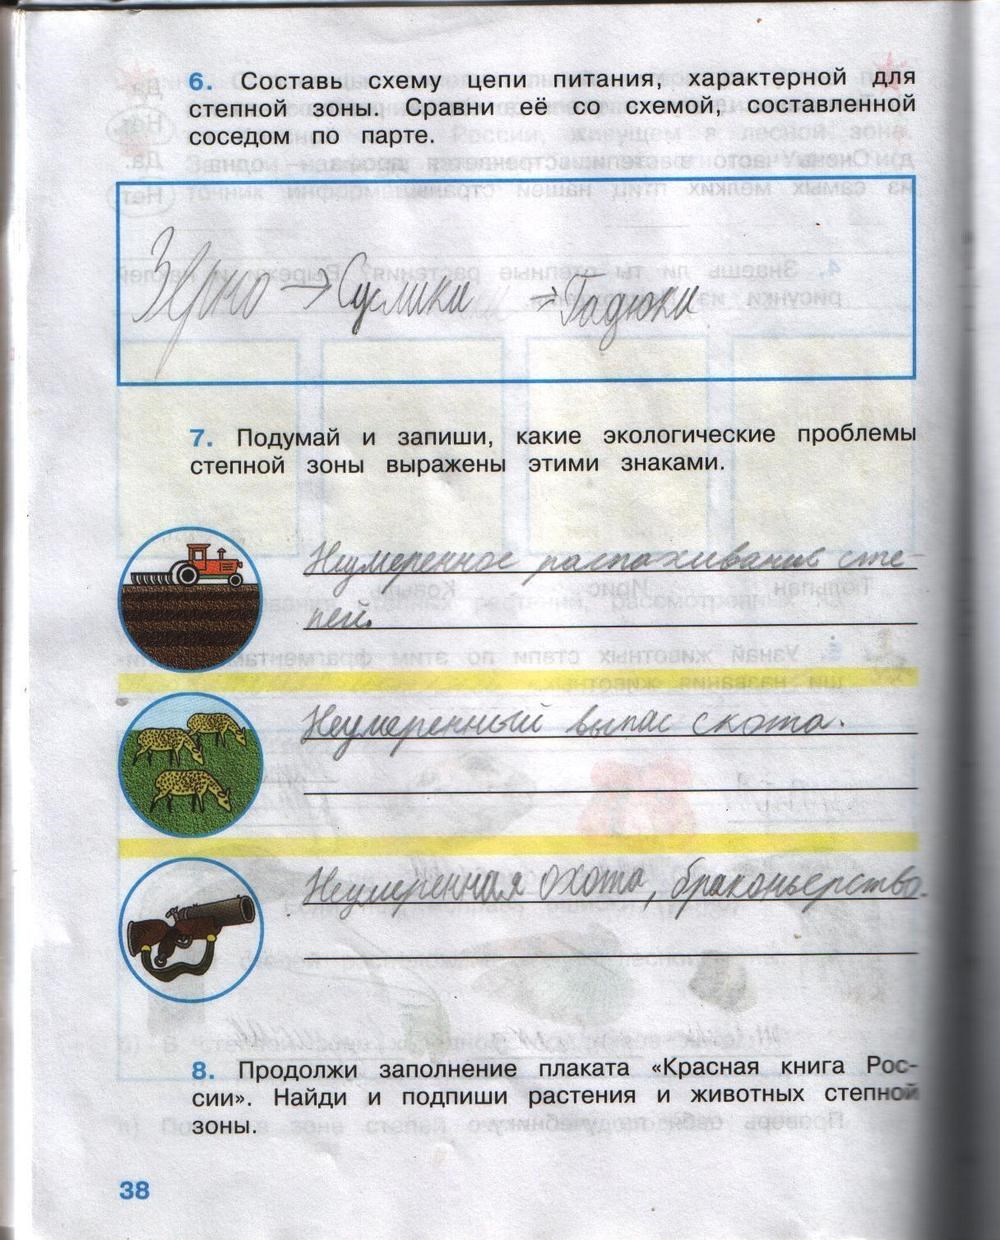 6. Составь схему цепи питания, характерной для
степной зоны. Сравни её со схемой, составленной
соседом по парте.
Зерно → Суслики → Гадюки
7. Подумай и запиши, какие экологические проблемы
степной зоны выражены этими знаками.
Неумеренное распахивание сте-
пей.
Неумеренный выпас скота.
Неумеренная охота, браконьерство.
8. Продолжи заполнение плаката «Красная книга Рос-
сии». Найди и подпиши растения и животных степной
зоны.
38